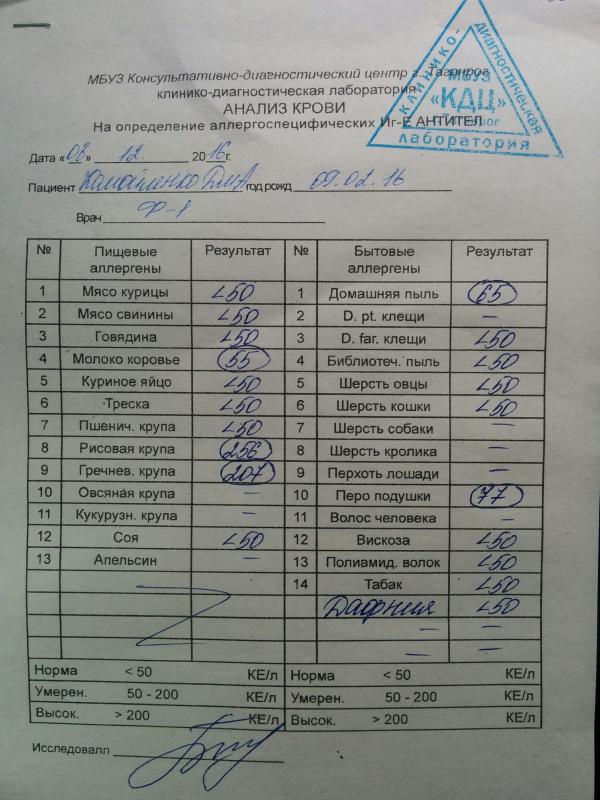 МБУЗ Консультативно-диагностический центр г. Таганрог
клинико-диагностическая лаборатория
АНАЛИЗ КРОВИ
На определение аллергоспецифических Иг-Е АНТИТЕЛ
КЛИНИКО-диагностическая лаборатория
МБУЗ
«КДЦ»
Дата «08» 12. 2016г.
Пациент год рожд 09.02.16
Врач Ф-1
№ Пищевые аллергены Результат № Бытовые аллергены Результат
1 Мясо курицы <50 1 Домашняя пыль 65
2 Мясо свинины <50 2 D. pt. клещи –
3 Говядина <50 3 D. far. клещи <50
4 Молоко коровье 55 4 Библиотеч. пыль <50
5 Куриное яйцо <50 5 Шерсть овцы <50
6 Треска <50 6 Шерсть кошки <50
7 Пшенич. крупа <50 7 Шерсть собаки –
8 Рисовая крупа 256 8 Шерсть кролика –
9 Гречнев. крупа 207 9 Перхоть лошади –
10 Овсяная крупа – 10 Перо подушки 77
11 Кукурузн. крупа – 11 Волос человека –
12 Соя <50 12 Вискоза <50
13 Апельсин – 13 Полиамид. волок <50
14 Табак <50
Дафния <50
– –
– –
Норма < 50 КЕ/л Норма < 50 КЕ/л
Умерен. 50 - 200 КЕ/л Умерен. 50 - 200 КЕ/л
Высок. > 200 КЕ/л Высок. > 200 КЕ/л
Исследовалл